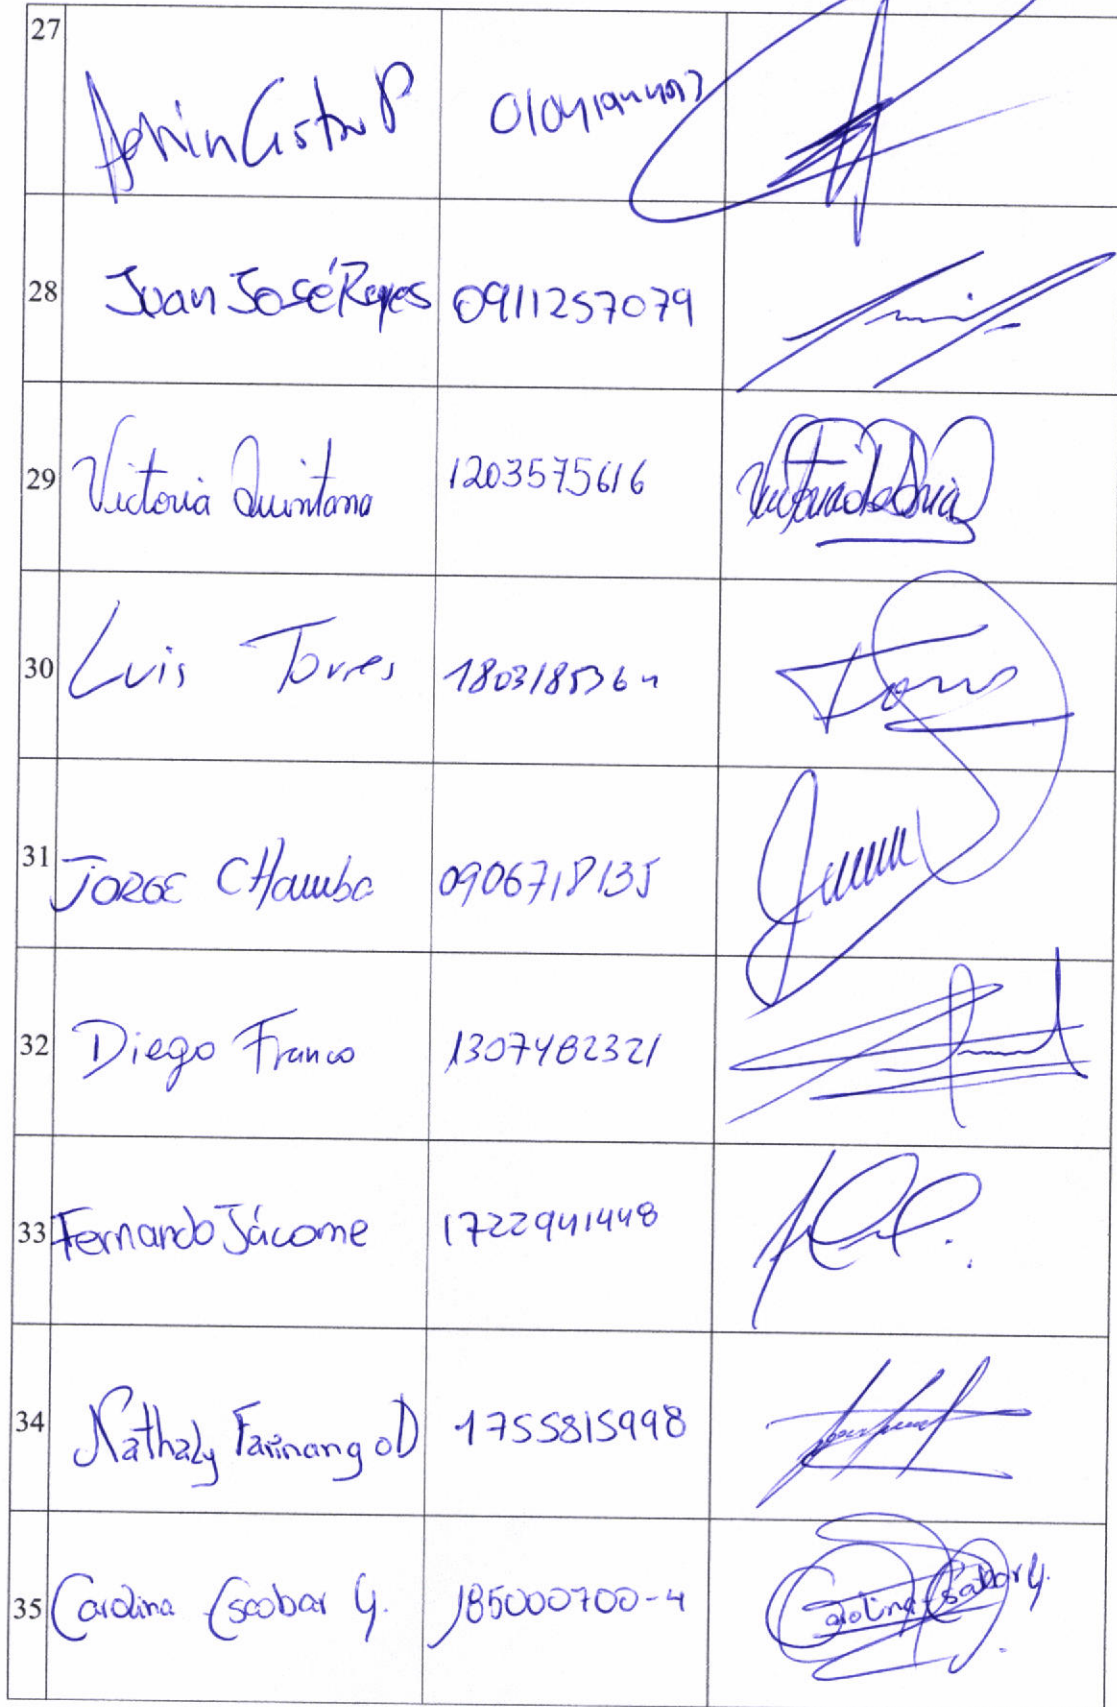 27 Castro P
28 Juan José Reyes 0911257079
29 Victoria Quintana 1203575616
30 Luis Torres
31 JORGE CHamba 0906718135
32 Diego Franco 1307482321
33 Fernando Jácome 1722941448
34 Nathaly Farinango D 1755815998
35 Carolina Escobar G. 185000700-4 Carolina Escobar G.